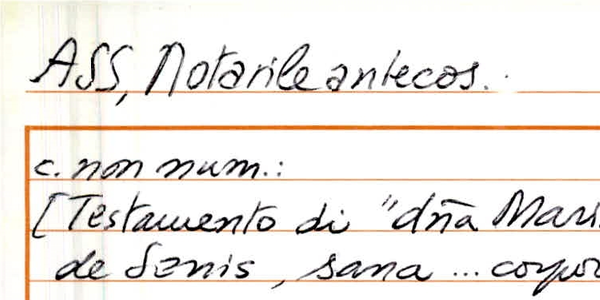 ASS, Notarile antecos.
c. non num.:
[Testamento di "dña Mari
de Senis, sana ... corpo